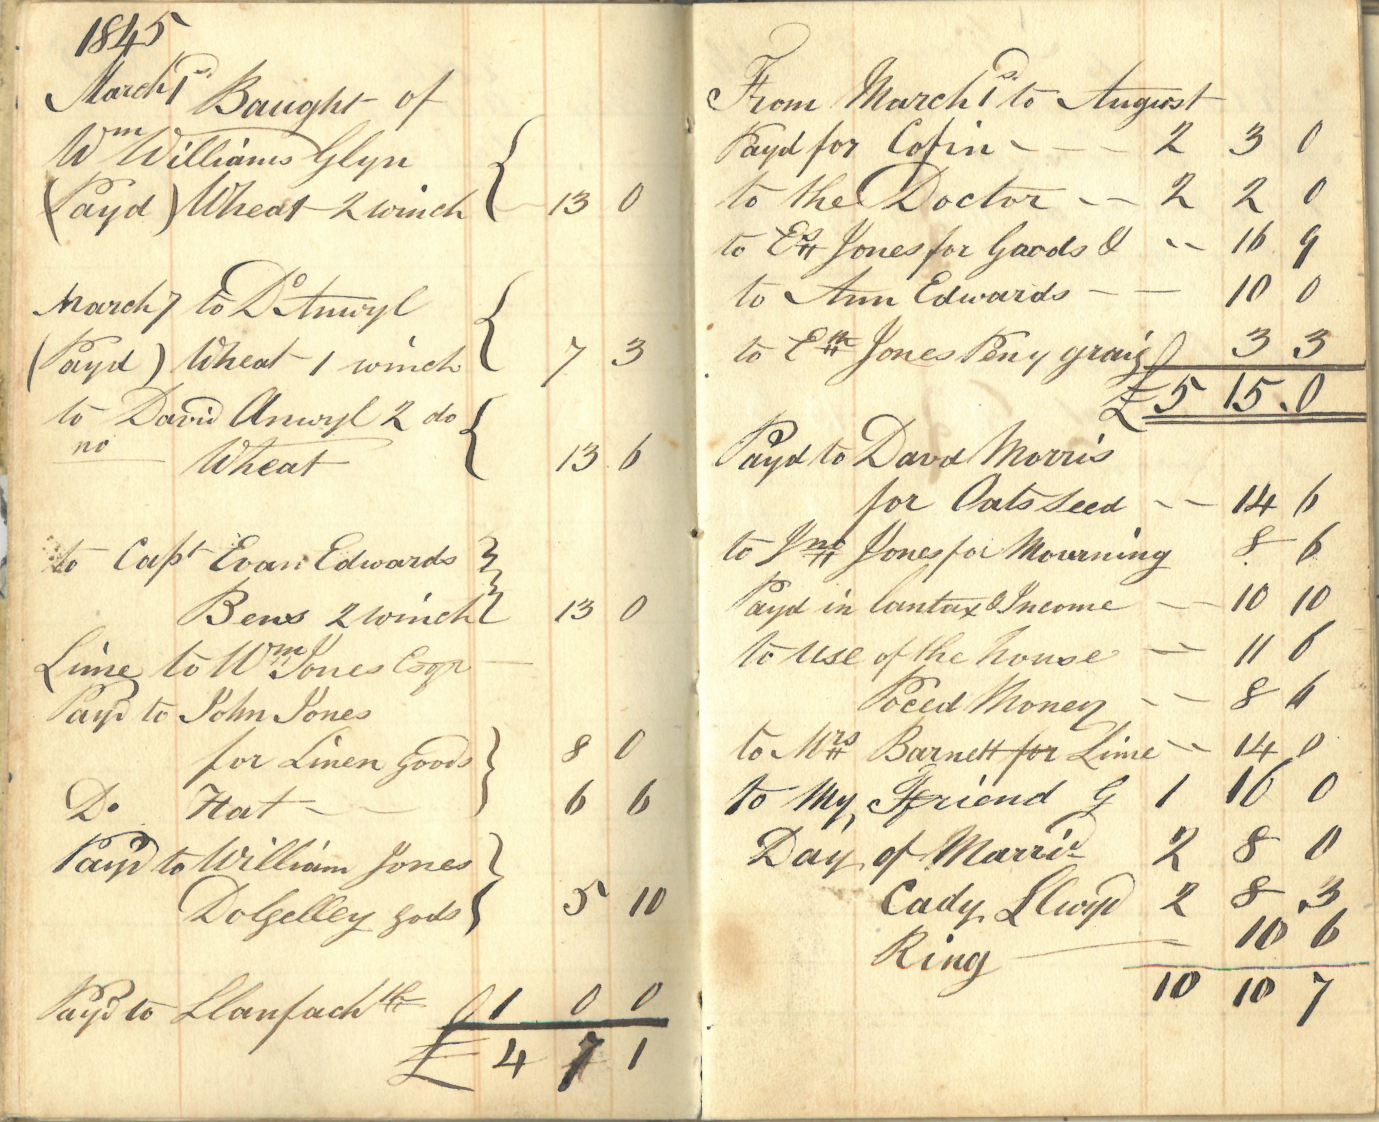 1845
March 1st Baught of
Wm Williams Glyn
(Payd) Wheat 2 winch 13 0
March 7 to Do Anwyl
(Payd) Wheat 1 winch 7 3
to David Anwyl 2 do
no Wheat 13 6
to Capt Evan Edwards
Bens 2 winch 13 0
Lime to Wm Jones Esqr
Payd to John Jones
for Linen goods 8 0
Do Hat 6 6
Payd to William Jones
Dolgelley gods 5 10
Payd to Llanfachth 0 1 0 0
£ 4 7 1
From March 1st to August
Payd for Cofin 2 3 0
to the Doctor 2 2 0
to Jones for Goods & 16 9
to Ann Edwards 10 0
to Jones Peny graig 0 3 3
£ 5 15 . 0
Payd to Davd Morris
for Oats Seed 14 6
to Jno Jones for Mourning 8 6
Payd in & Income 10 10
to use of the house 11 6
Money 8 6
to Mrs Barnett for Lime 14 0
to My Friend G 1 16 0
Day of Marrid 2 8 0
Cady Llwyd 2 8 3
Ring 10 6
10 10 7